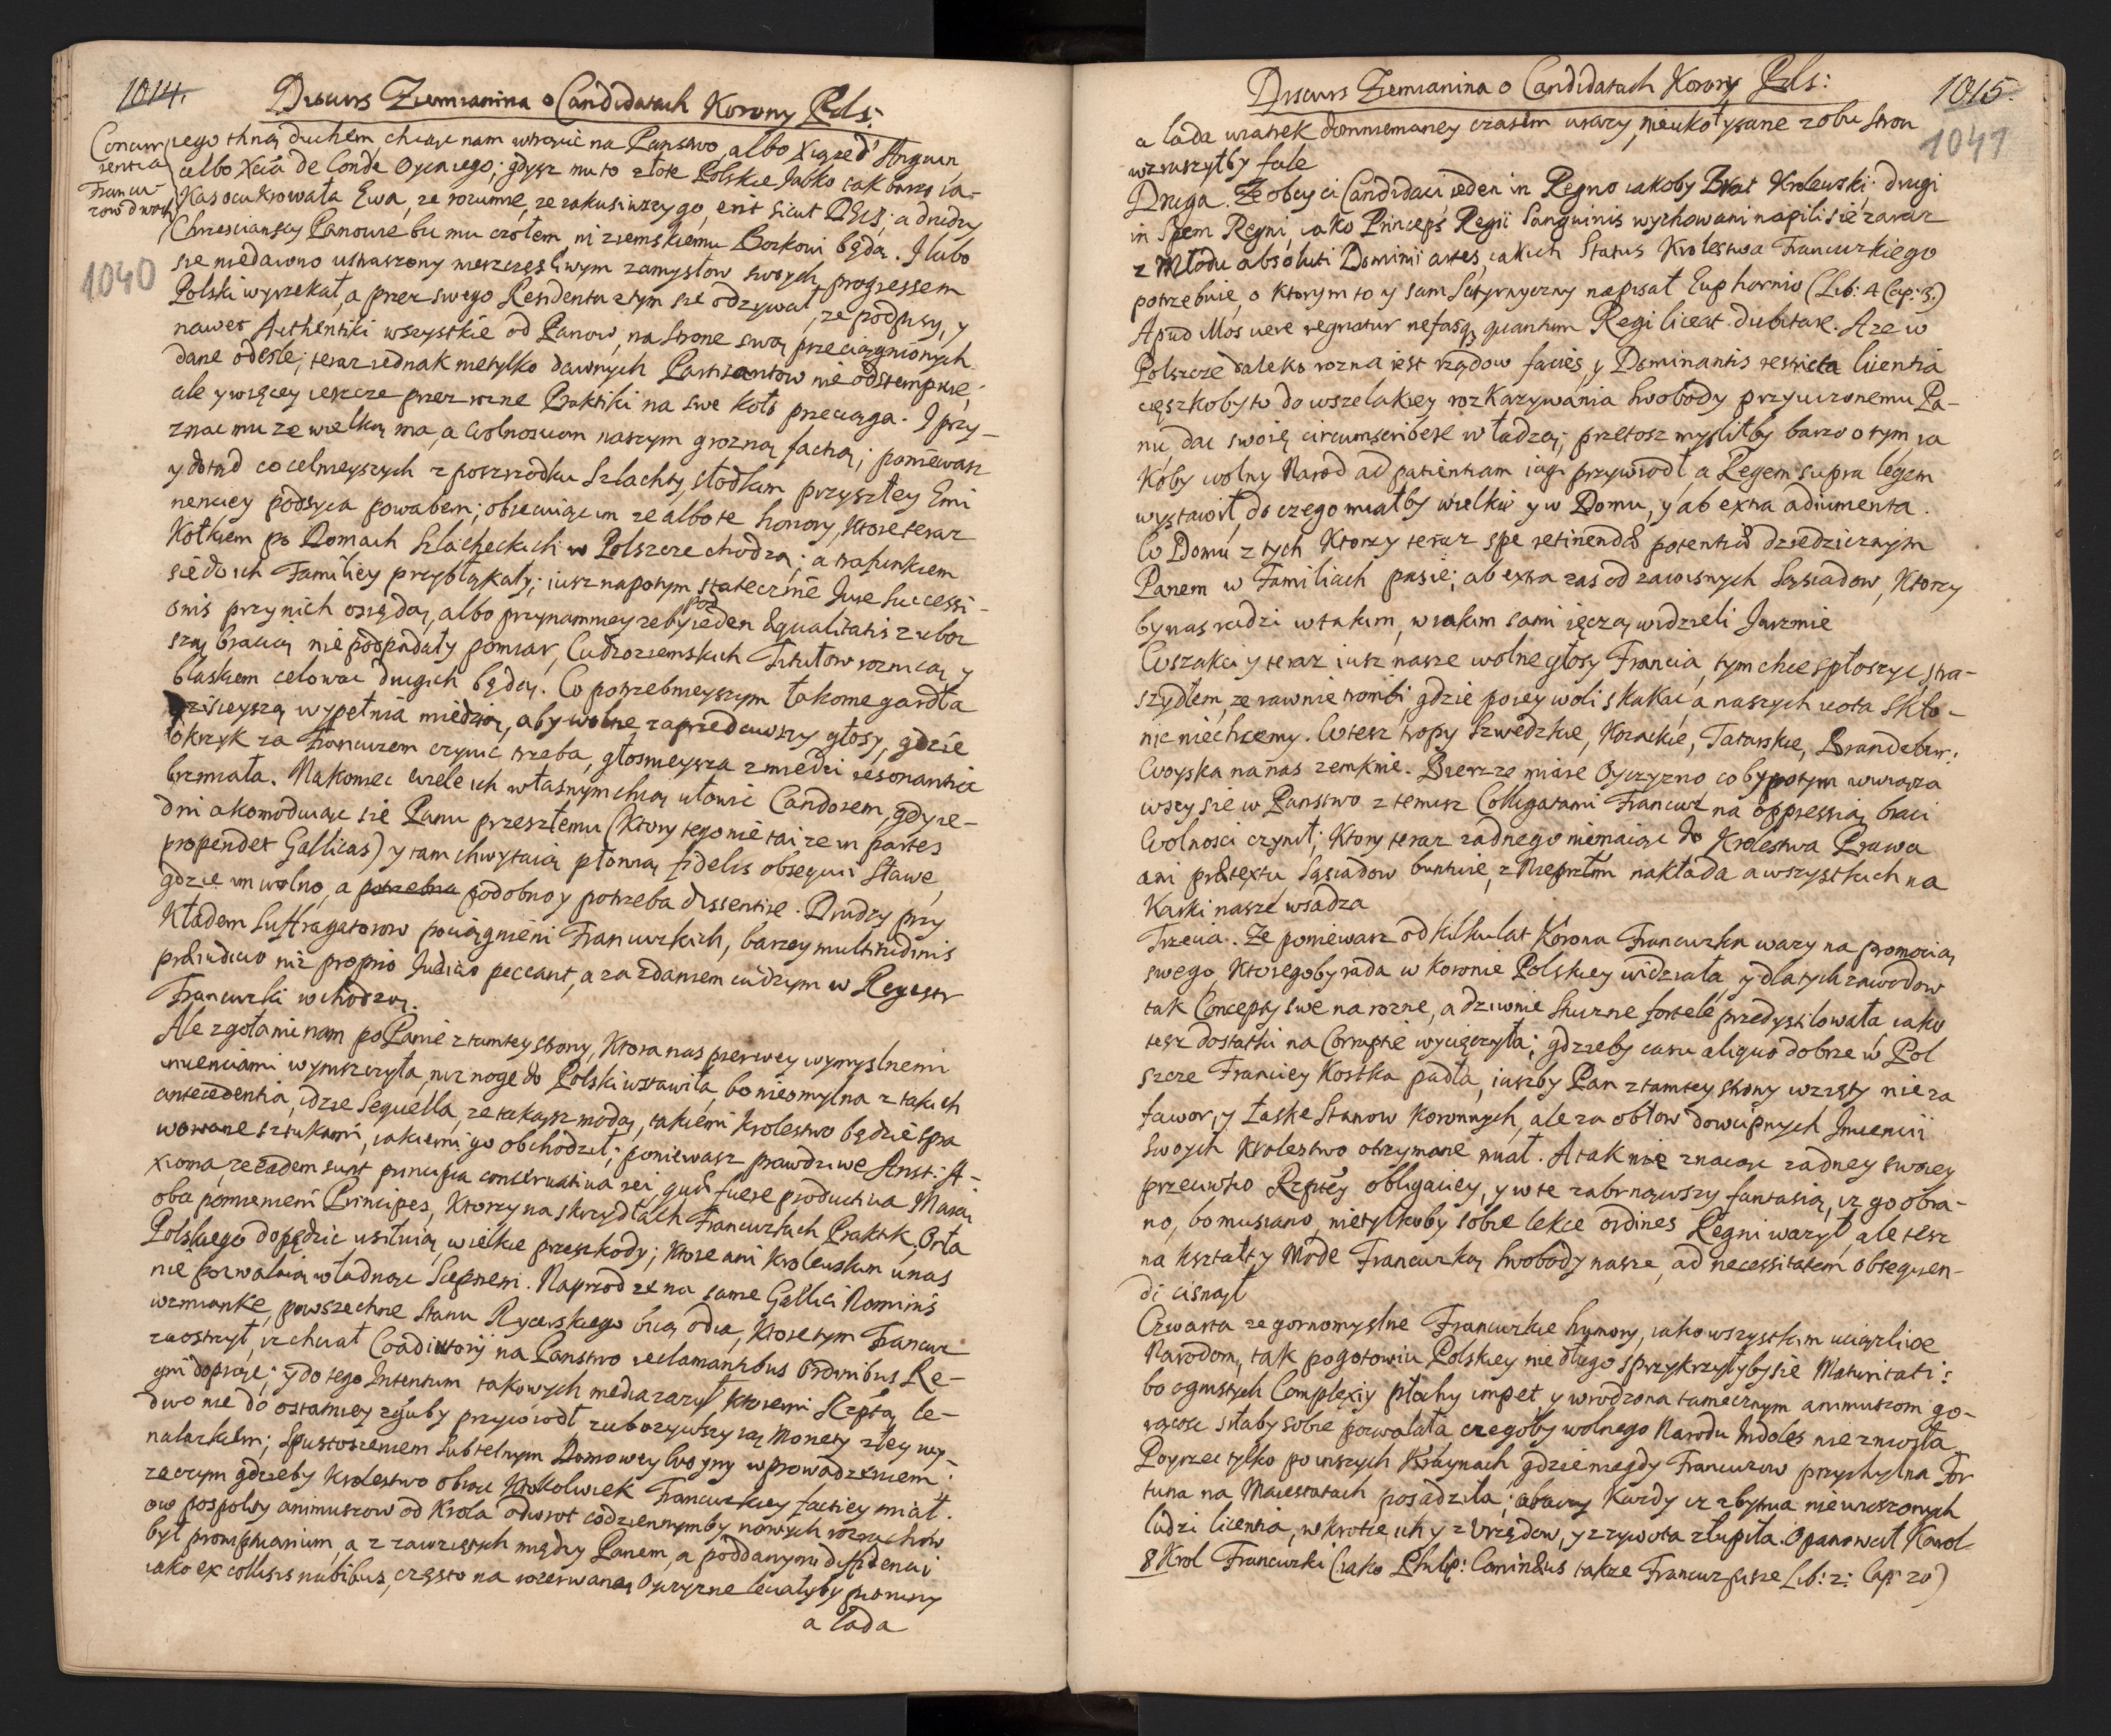 1014.
Discurs Ziemianina o Candidatach Korony Pols:
Concur
rentia
Francu-
zow dwoch
1040
iego tchną duchem, chcąc nam wrazić na Panstwo, albo Xiązęd' Anguin
albo Xcia de Conde Oyca iego; gdysz mu to złote Polskie Jabko tak barzo za-
Kasocukrowała Ewa, ze rozumie, ze zakusiwszy go, erit sicut DEUS; a drudzy
Chrzescianscy Panowie bu mu czołem, ni ziemskiemu Bozkowi będą. I lubo
sie niedawno ustraszony nieszczęsliwym zamysłow swoych progressem
Polski wyrzekał, a przez swego Residenta z tym sie odzywał, ze podpisy, y
nawet Authentiki wszystkie od Panow, na strone swą przeciągnionych
dane odesle; teraz iednak nietylko dawnych Partizantow nie odstempuie,
ale y więcey ieszcze przez rozne Praktiki na swe koło przeciąga. I przy-
znac mu ze wielką ma, a Wolnosciom naszym grozną factią; poniewasz
y dotąd co celnieyszych z poszrzodku Szlachty, słodkim przyszłey Emi
nenciey podsyca powabem; obiecuiąc im ze albo te honory, ktore teraz
Kołkiem po Domach Szlacheckich w Polszcze chodzą; a trafunkiem
sie do ich Familiey przybłąkały; iusz napotym statecznie Jure Successi-
onis przy nich osiędą, albo przynamniey zeby pod ieden Equalitatis z uboz
szą bracią nie podpadały pomiar, Cudzoziemskich Tytułow roznicą y
blaskiem celowac drugich będą. Co potrzebnieyszym łakome gardła
dzisieyszą wypełnia miedzią, aby wolne zaprzedawszy głosy, gdzie
okrzyk za Francuzem czynic trzeba, głosnieysza z miedzi resonantia
brzmiała. Nakoniec wiele ich własnym chcą ułowic Candorem, gdy ie-
dni akomoduiąc sie Panu przeszłemu (ktory tego nie tai ze in partes
propendet Gallicas) y tam chwytaią płonną fidelis obsequii Sławe,
gdzie im wolno, a potrzebna podobno y potrzeba dissentire. Drudzy przy
Kładem Suffragatorow pociągnieni Francuzkich, barzey multitudinis
præiudicio niż proprio Judicio peccant, a za zdaniem cudzym w Regestr
Francuzki wchodzą.
Ale zgoła nie nam po Panie z tamtey strony, Ktora nas pierwey wymyslnemi
inuenciami wyniszczyła, niz noge do Polski wstawiła, bo nieomylna z takich
antecedentia, idzie Sequella, ze takąsz modą, takiemi Krolestwo będzie spra
wowane sztukami, iakiemi go obchodził; poniewasz prawdziwe Arist: A-
xioma, ze eadem sunt principia conseruatiua rei, quæ fuere productiua Maią
oba pomienieni Principes, Ktorzy na skrzydłach Francuzkich Praktik, Orła
Polskiego dopędzic usiłuią, wielkie przeszkody; ktore ani Krolewskim unas
nie pozwalaią władnąc Scepnem. Naprzod ze na same Gallici Nominis
wzmianke, powszechne Stanu Rycerskiego biią odia, ktore tym Francuz
zaostrzył, iz chciał Coadiutorij na Panstwo reclamantibus Ordinibus Re-
gni dopiąc; y do tego Intentum takowych media zazył, ktoremi Rzptą le-
dwo nie do ostatniey zguby przywiodł, zubozywszy ią Monety złey wy-
nalazkiem; Spustoszeniem Subtelnym Domowey Woyny wprowadzeniem;
zaczym gdzieby Krolestwo obiąc Ktokolwiek Francuzkiey factiey miał.
ow pospolity animuszow od Krola odwrot codziennymby nowych rozruchow
był promptuarium, a z zawziętych między Panem, a poddanymi diffidencii
iako ex collisis nubibus, często na rozerwaną Oyczyzne leciałyby pioruny
a lada
Discurs Ziemianina o Candidatach Korony Pols:
1015.
1041
a lada wiatrek domniemaney czasem urazy, nieukołysane z obu stron
wzruszyłby fale
Druga. Ze obay ci Candidaci ieden in Regno iakoby Brat Krolewski; drugi
in Spem Regni, iako Princeps Regii Sanguinis wychowani napili sie zaraz
z Młodu absoluti Dominii artes, iakich Status Krolestwa Francuzkiego
potrzebuie, o ktorym to y sam Satyryczny napisał Euphormio (Lib: 4 Cap: 3.)
Apud Illos vere regnatur nefasq3 quantum Regi liceat dubitare. A ze w
Polszcze daleko rozna iest rządow facies, y Dominantis restricta licentia
cięszkoby to do wszelakiey rozkazywania Swobody przyuczonemu Pa-
nu, dac swoię circumscribere władzą; przetosz mysliłby barzo o tym, ia
Koby wolny Narod ad patientiam iugi przywiodł, a Regem supra legem
wystawił, do czego miałby wielkie y w Domu, y ab extra adiumenta.
W Domu z tych Ktorzy teraz spe retinendæ potentiæ dziedzicznym
Panem w Familiach pasie; ab extra zas od zawisnych Sąsiadow, Ktorzy
by nas radzi w takim, w iakim sami ięczą widzieli Jarzmie
Wszakci y teraz iusz nasze wolne głosy Francia, tym chce spłoszyc, stra-
szydłem, ze rawnie trombi, gdzie po iey woli skakac, a naszych uota skło-
nic niechcemy. Wtesz tropy Szwedzkie, Kozackie, Tatarskie, Brandebur:
Woyska na nas zemknie. Bierzze miare Oyczyzno coby potym wwiąza
wszy sie w Panstwo z temisz Colligatami Francuz na oppressią braci
Wolnosci czynił; Ktory teraz zadnego niemaiąc do Krolestwa Prawa
ani prætextu Sąsiadow buntuie, z Nieprzłmi nakłada a wszystkich na
Karki nasze wsadza
Trzecia. Ze poniewasz od kilku lat Korona Francuzka wazy na promocią
swego, Ktoregoby rada w Koronie Polskiey widziała, y dla tych zawodow
tak Concepty swe na rozne, a dziwnie sturzne fortele przedystilowała iako
tesz dostatki na Corruptie wycięczyła; gdzieby casu aliquo dobrze w Pol
szcze Franciey Kostka padła, iuszby Pan z tamtey strony wzięty nie za
fawor, y łaske Stanow Koronnych, ale za obłow dowcipnych Inuencii
swoych Krolestwo otrzymane miał. A tak nie znaiąc zadney swoiey
przeciwko Rzptey obligaciey, y w te zabrnąwszy fantasią, iz go obra-
no, bo musiano, nietylkoby sobie lekce ordines Regni wazył, ale tesz
na kształt y Mode Francuzką swobody nasze, ad necessitatem obsequen-
di cisnął
Czwarta ze gornomyslne Francuzkie humory, iako wszystkim uciązliwe
Narodom, tak pogotowiu Polskiey nie długo sprzykrzyłyby sie Maturitati:
bo ognistych Complexiy płochy impet, y wrodzona tamecznym animuszom go-
rącosc siłaby sobie pozwalała, czegoby wolnego Narodu Indoles nie zniosła
Poyrzec tylko po inszych Kraynach gdzie niegdy Francuzow przychylna For
tuna na Maiestatach posadziła; obaczy kazdy iz zbytnia nieuwsszonych
ludzi licentia, w krotce ich y z Urzędow, y z zywota złupiła. Opanował Karol
8 Krol Francuzki (iako Philip: Cominæus takze Francuz pisze Lib: 2: Cap: 20)